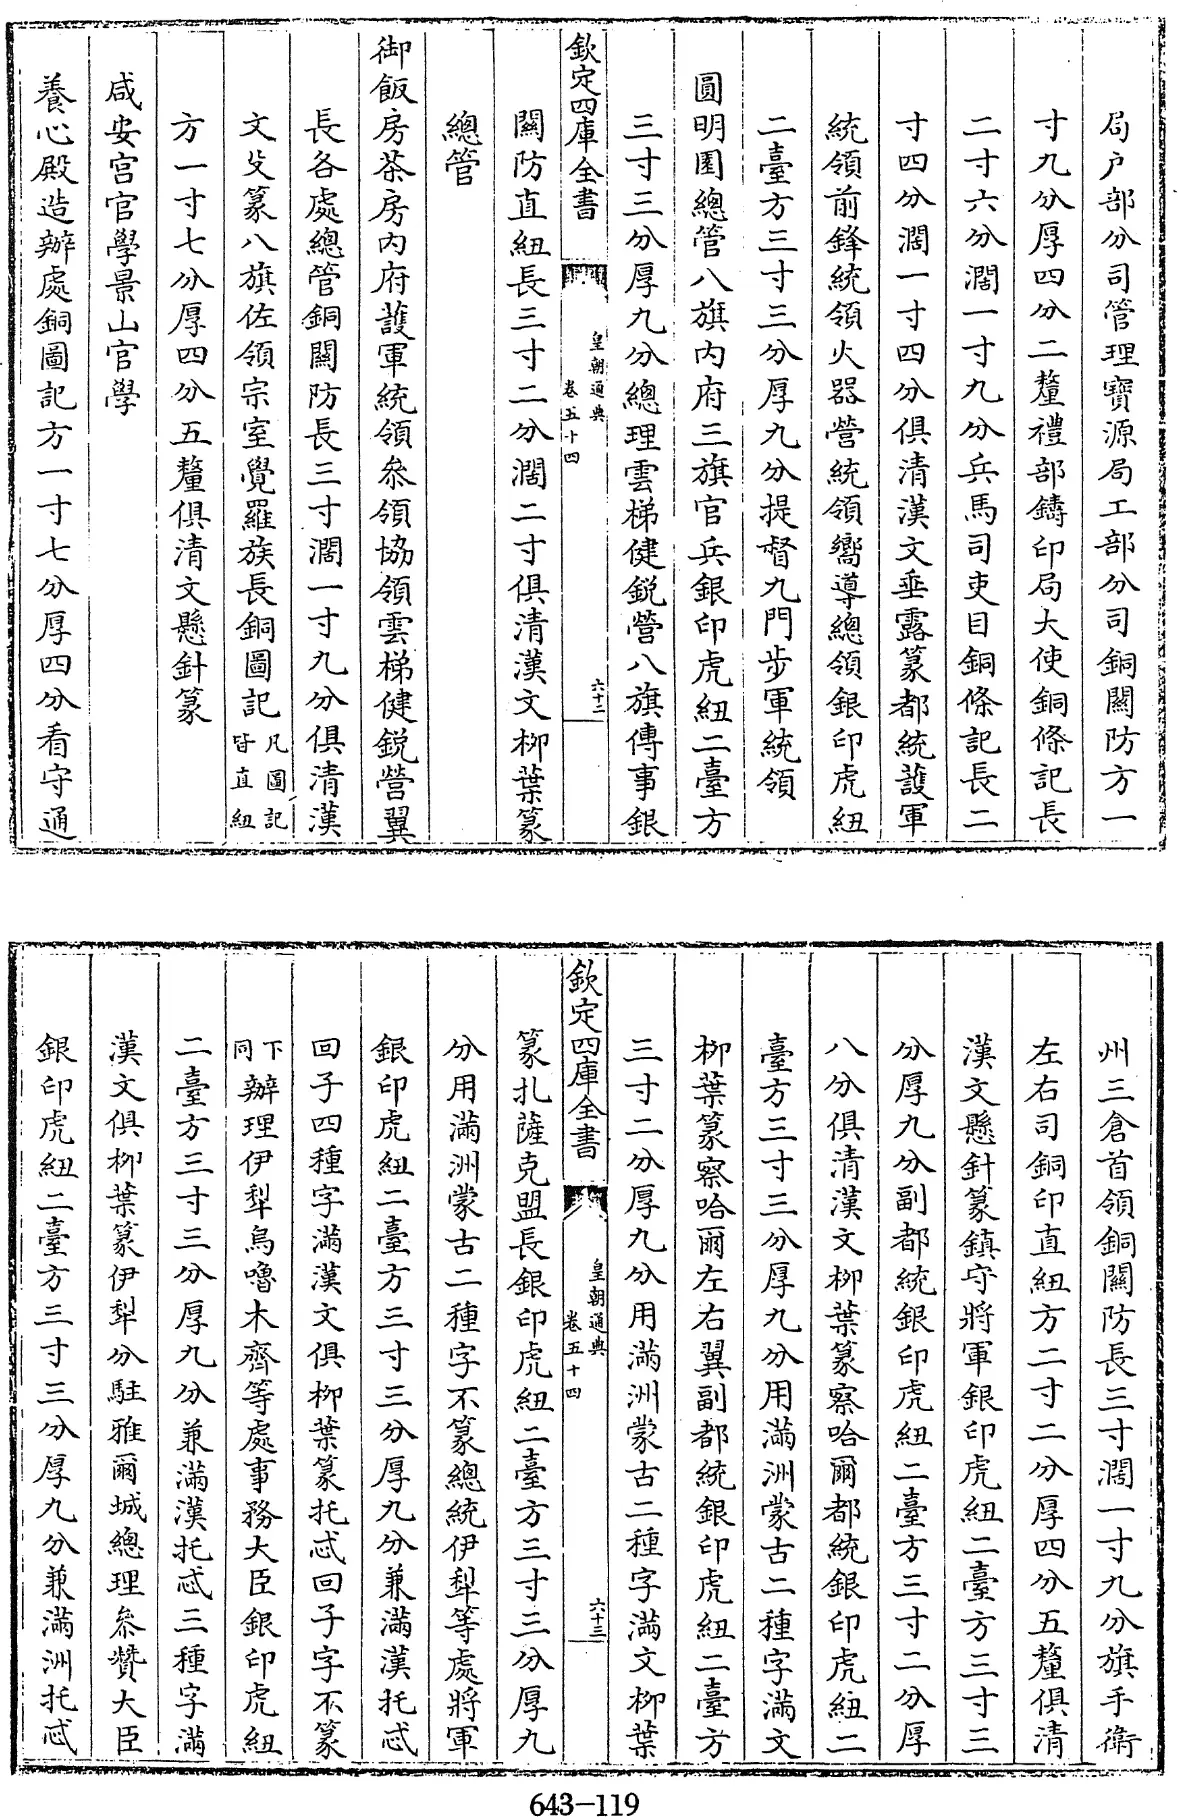 局户部分司管理寶源局工部分司銅關防方一
寸九分厚四分二釐禮部鑄印局大使銅條記長
二寸六分濶一寸九分兵馬司吏目銅條記長二
寸四分濶一寸四分俱清漢文垂露篆都統護軍
統領前鋒統領火器營統領嚮導總領銀印虎紐
二臺方三寸三分厚九分提督九門步軍統領
圓明園總管八旗内府三旗官兵銀印虎紐二臺方
三寸三分厚九分總理雲梯健鋭營八旗傳事銀
欽定四庫全書
皇朝通典
卷五十四
六十二
關防直紐長三寸二分濶二寸俱清漢文柳葉篆
總管
御飯房茶房内府護軍統領叅領協領雲梯健鋭營翼
長各處總管銅關防長三寸濶一寸九分俱清漢
文殳篆八旗佐領宗室覺羅族長銅圖記凡圖記皆直紐
方一寸七分厚四分五釐俱清文懸針篆
咸安宫官學景山官學
養心殿造辦處銅圖記方一寸七分厚四分看守通
州三倉首領銅關防長三寸濶一寸九分旗手衛
左右司銅印直紐方二寸二分厚四分五釐俱清
漢文懸針篆鎮守將軍銀印虎紐二臺方三寸三
分厚九分副都統銀印虎紐二臺方三寸二分厚
八分俱清漢文柳葉篆察哈爾都統銀印虎紐二
臺方三寸三分厚九分用滿洲蒙古二種字滿文
柳葉篆察哈爾左右翼副都統銀印虎紐二臺方
三寸二分厚九分用滿洲蒙古二種字滿文柳葉
欽定四庫全書
皇朝通典
卷五十四
六十三
篆扎薩克盟長銀印虎紐二臺方三寸三分厚九
分用滿洲蒙古二種字不篆總統伊犁等處將軍
銀印虎紐二臺方三寸三分厚九分兼滿漢托忒
回子四種字滿漢文俱柳葉篆托忒回子字不篆
下同辦理伊犁烏嚕木齊等處事務大臣銀印虎紐
二臺方三寸三分厚九分兼滿漢托忒三種字滿
漢文俱柳葉篆伊犁分駐雅爾城總理叅贊大臣
銀印虎紐二臺方三寸三分厚九分兼滿洲托忒
643-119